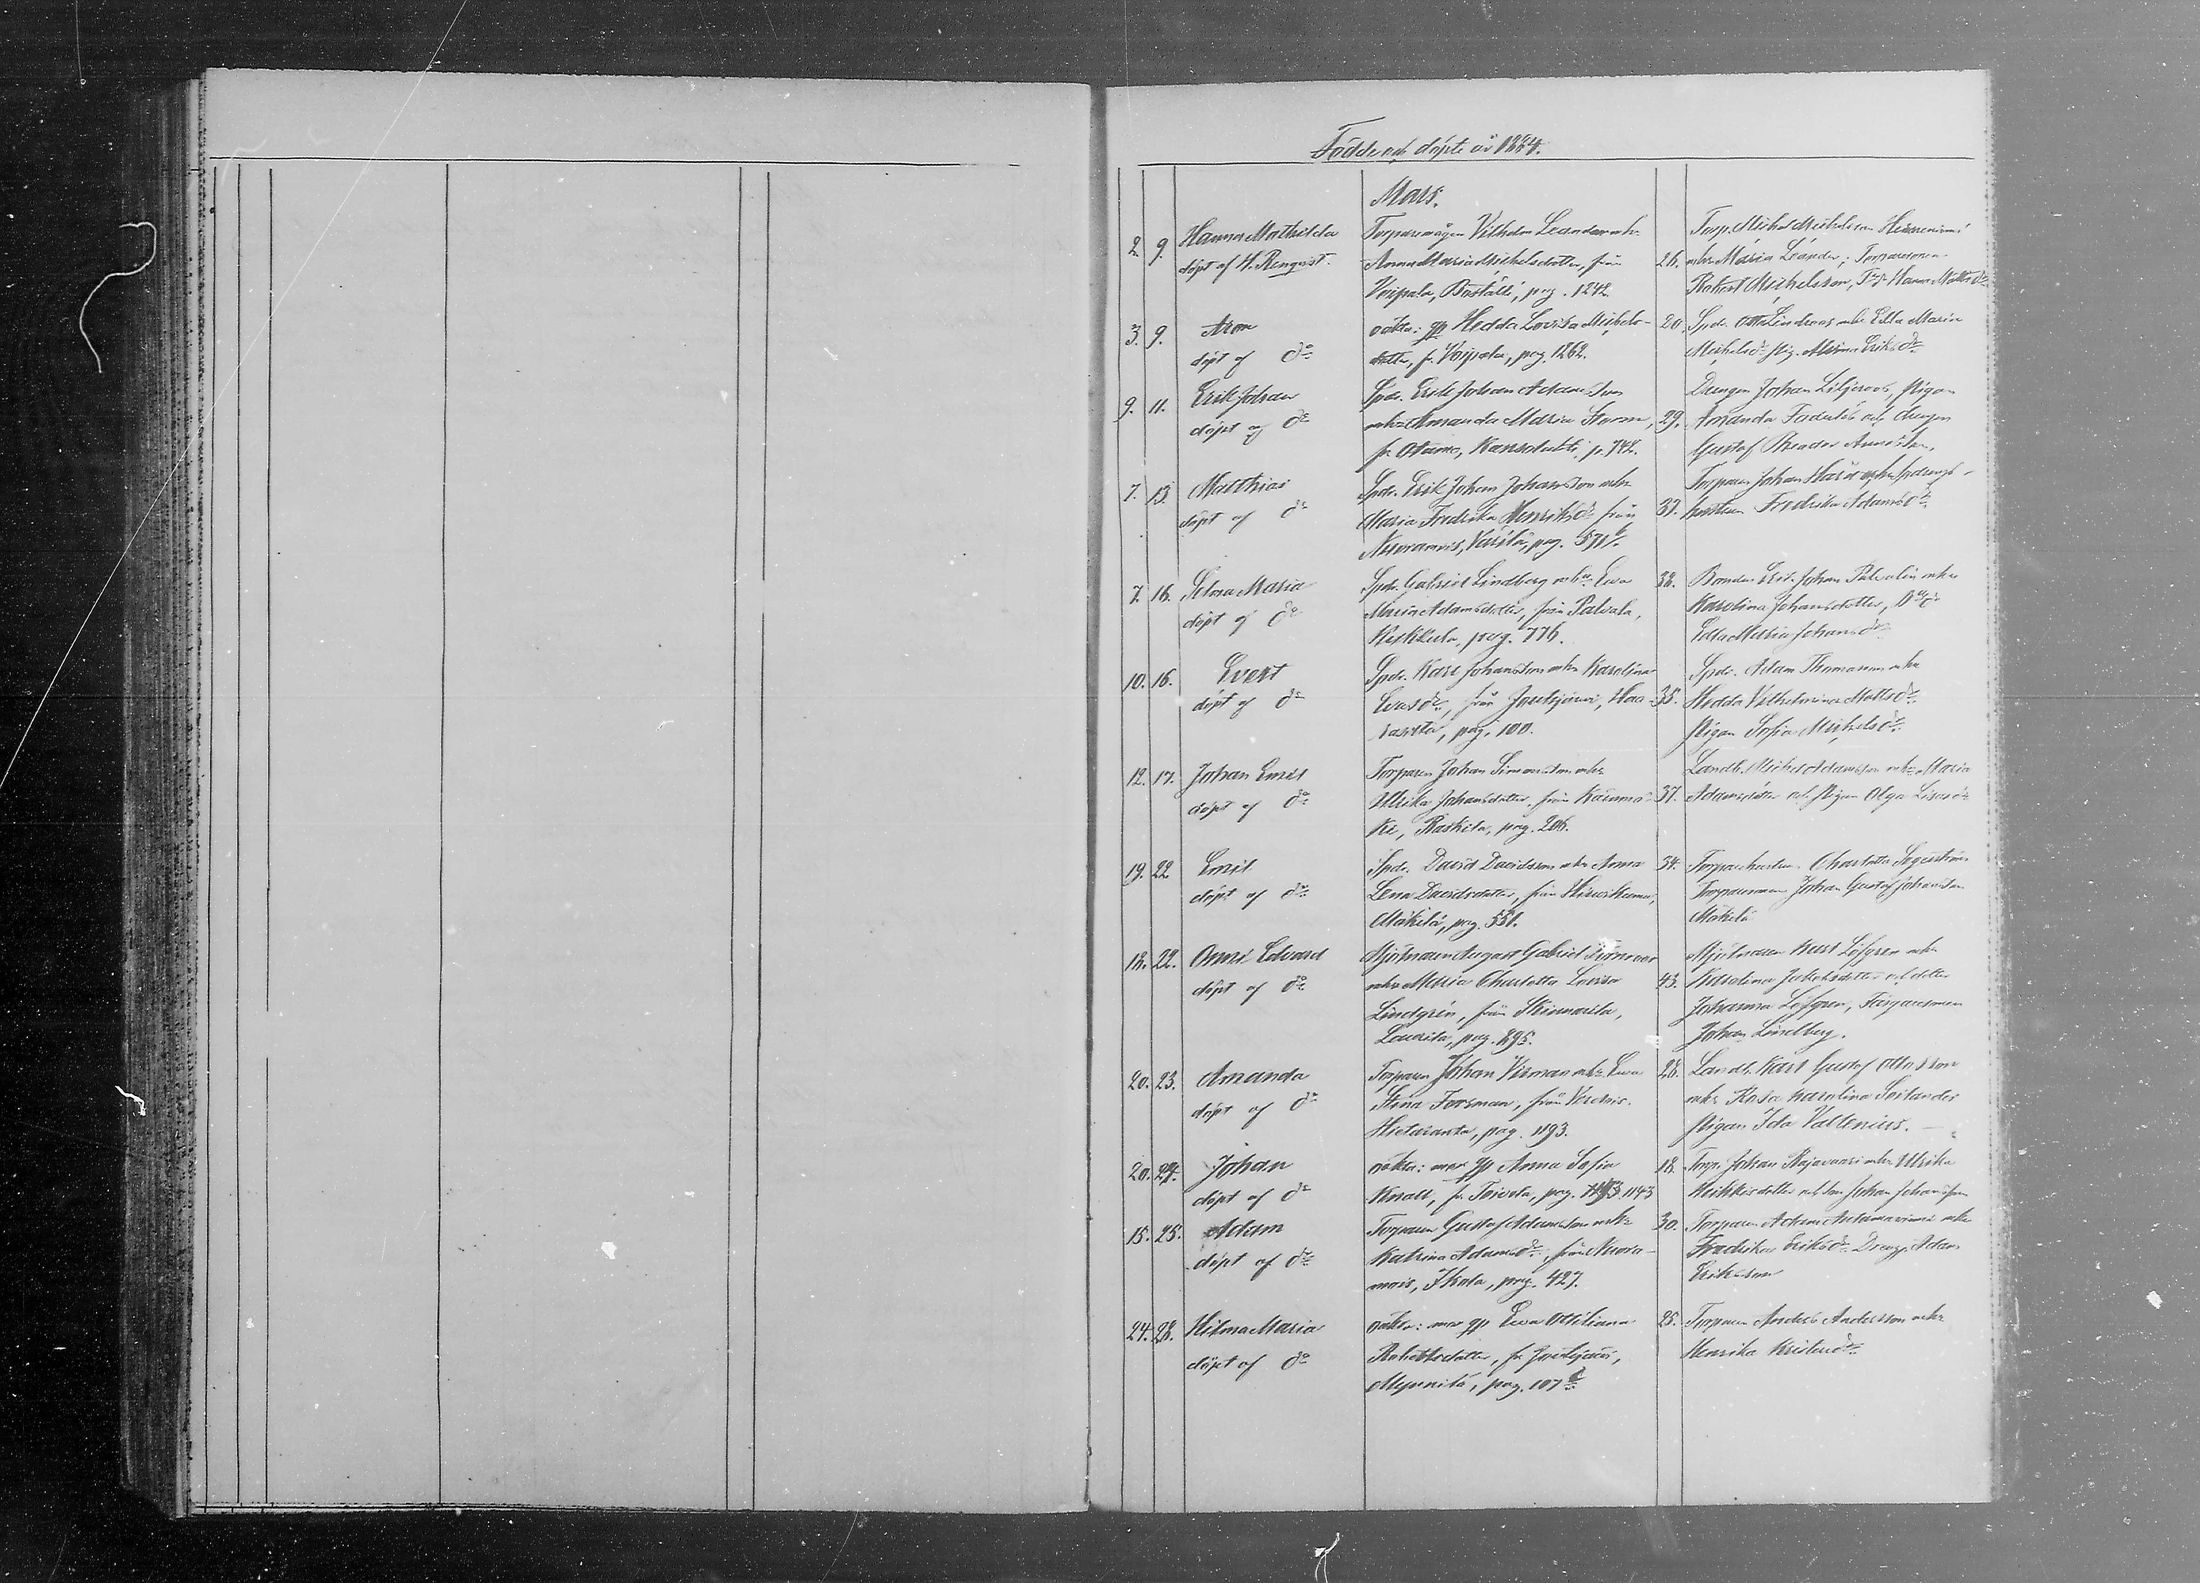 Födde och döpte år 1884.
Mars.
2. 9. Hanna Mathilda
döpt af H. Renqvist.
Torparemågen Vilhelm Leander o. h.
Anna Maria Michelsdotter, från
Voipala, Buställe, pag. 1242.
26.
Torp. Michel Michelsson
o. h. Maria Leander; Torparesonen
Robert Michelsson, P. Hanna Mattsdr
3. 9. Aron
döpt af do
oäkta: qp Hedda Lovisa Michels-
dotter, fr. Voipala, pag. 1262.
20.
Spdr. Otto Lindroos o. h. Edla Maria
Michelsdr pig. Mina Eriksdr
9. 11. Erik Johan
döpt af do
Spdr. Erik Johan Adamsson
o. h. Amanda Maria Storm,
fr. Otamo, p. 742.
29.
Drengen Johan Liljeroos, pigan
Amanda och drengen
Gustaf Theador
7. 13. Matthias
döpt af do
Spdr. Erik Johan Johansson o. h.
Maria Fredrika Henriksdr från
Nuoramois, pag. 571
37.
Torparen Johan
hustrun Fredrika Adamsdr
7. 16. Selma Maria
döpt af do
Spdr. Gabriel Lindberg o. h. Eva
Maria Adamsdotter, från Palvala,
Keskkula, pag. 776.
38.
Bonden Erik Johan Palvalin o. h.
Karolina Johansdotter,
Edla Maria Johansdr
10. 16. Evert
döpt af do
Spdr. Karl Johansson o. h. Karolina
Evasdr, från Joutsjärvi,
pag. 100.
35.
Spdr. Adam Thomasson o. h.
Hedda Vilhelmina Mattsdr
pigan Sofia Michelsdr
12. 17. Johan Emil
döpt af do
Torparen Johan Simonsson o. h.
Ulrika Johansdotter, från Kammä-
ki, Raskila, pag. 206.
37.
Landb. Michel Adamsson o. h. Maria
Adamsdotter och pigan Olga
19. 22 Emil
döpt af do
Spdr. David Davidsson o. h. Anna
Lena Davidsdotter, från
Mäkilä, pag. 551.
34.
Torparehustrun Charlotta Segerström
Torparesonen Johan Gustaf Johansson
Mäkilä
18. 22. Onni Edvard
döpt af do
Mjölnaren August Gabriel
o. h. Maria Charlotta Lovisa
Lindgrén, från Skinnarila,
Laurila, pag. 895.
43.
Mjölnaren Karl Löfgren o. h.
Karolina Jakobsdotter och dotter
Johanna Löfgren, Färgaresonen
Johan Lindberg.
20. 23. Amanda
döpt af do
Torparen Johan Virman o. h. Eva
Stina Forsman, från
Hietaranta, pag. 1193.
28.
Landb. Karl Gustaf Ottosson
o. h. Rosa Karolina
Pigan Ida Valtenius.
20. 24. Johan
döpt af do
oäkta: mor qp Anna Sofia
Knall, fr. Toivola, pag. 1143
18.
Torp. Johan Rajavuori o. h. Ulrika
Heikkisdotter och son Johan Johansson
15. 25. Adam
döpt af do
Torparen Gustaf Adamsson o. h.
Katrina Adamsdr, från Nuora-
mois, Ikola, pag. 427.
30.
Torparen Adam o. h.
Fredrika Eriksdr Dreng. Adam
Eriksson
24. 28. Hilma Maria
döpt af do
oäkta: mor qp Eva Ottiliana
Robertsdotter, fr. Joutsjärvi,
pag. 107
25.
Torparen Anders Andersson o. h.
Henrika Kristersdr